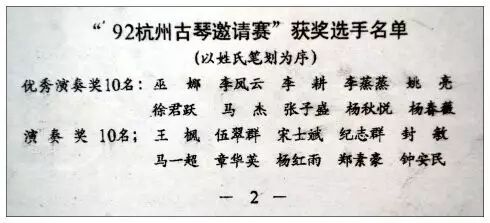 “'92杭州古琴邀请赛”获奖选手名单
(以姓氏笔划为序)
优秀演奏奖10名：巫 娜 李凤云 李 耕 李蒸蒸 姚 亮
徐君跃 马 杰 张子盛 杨秋悦 杨春薇
演 奏 奖 10名；王 枫 伍翠群 宋士斌 纪志群 封 敏
马一超 章华英 杨红雨 郑素豪 钟安民
— 2 —